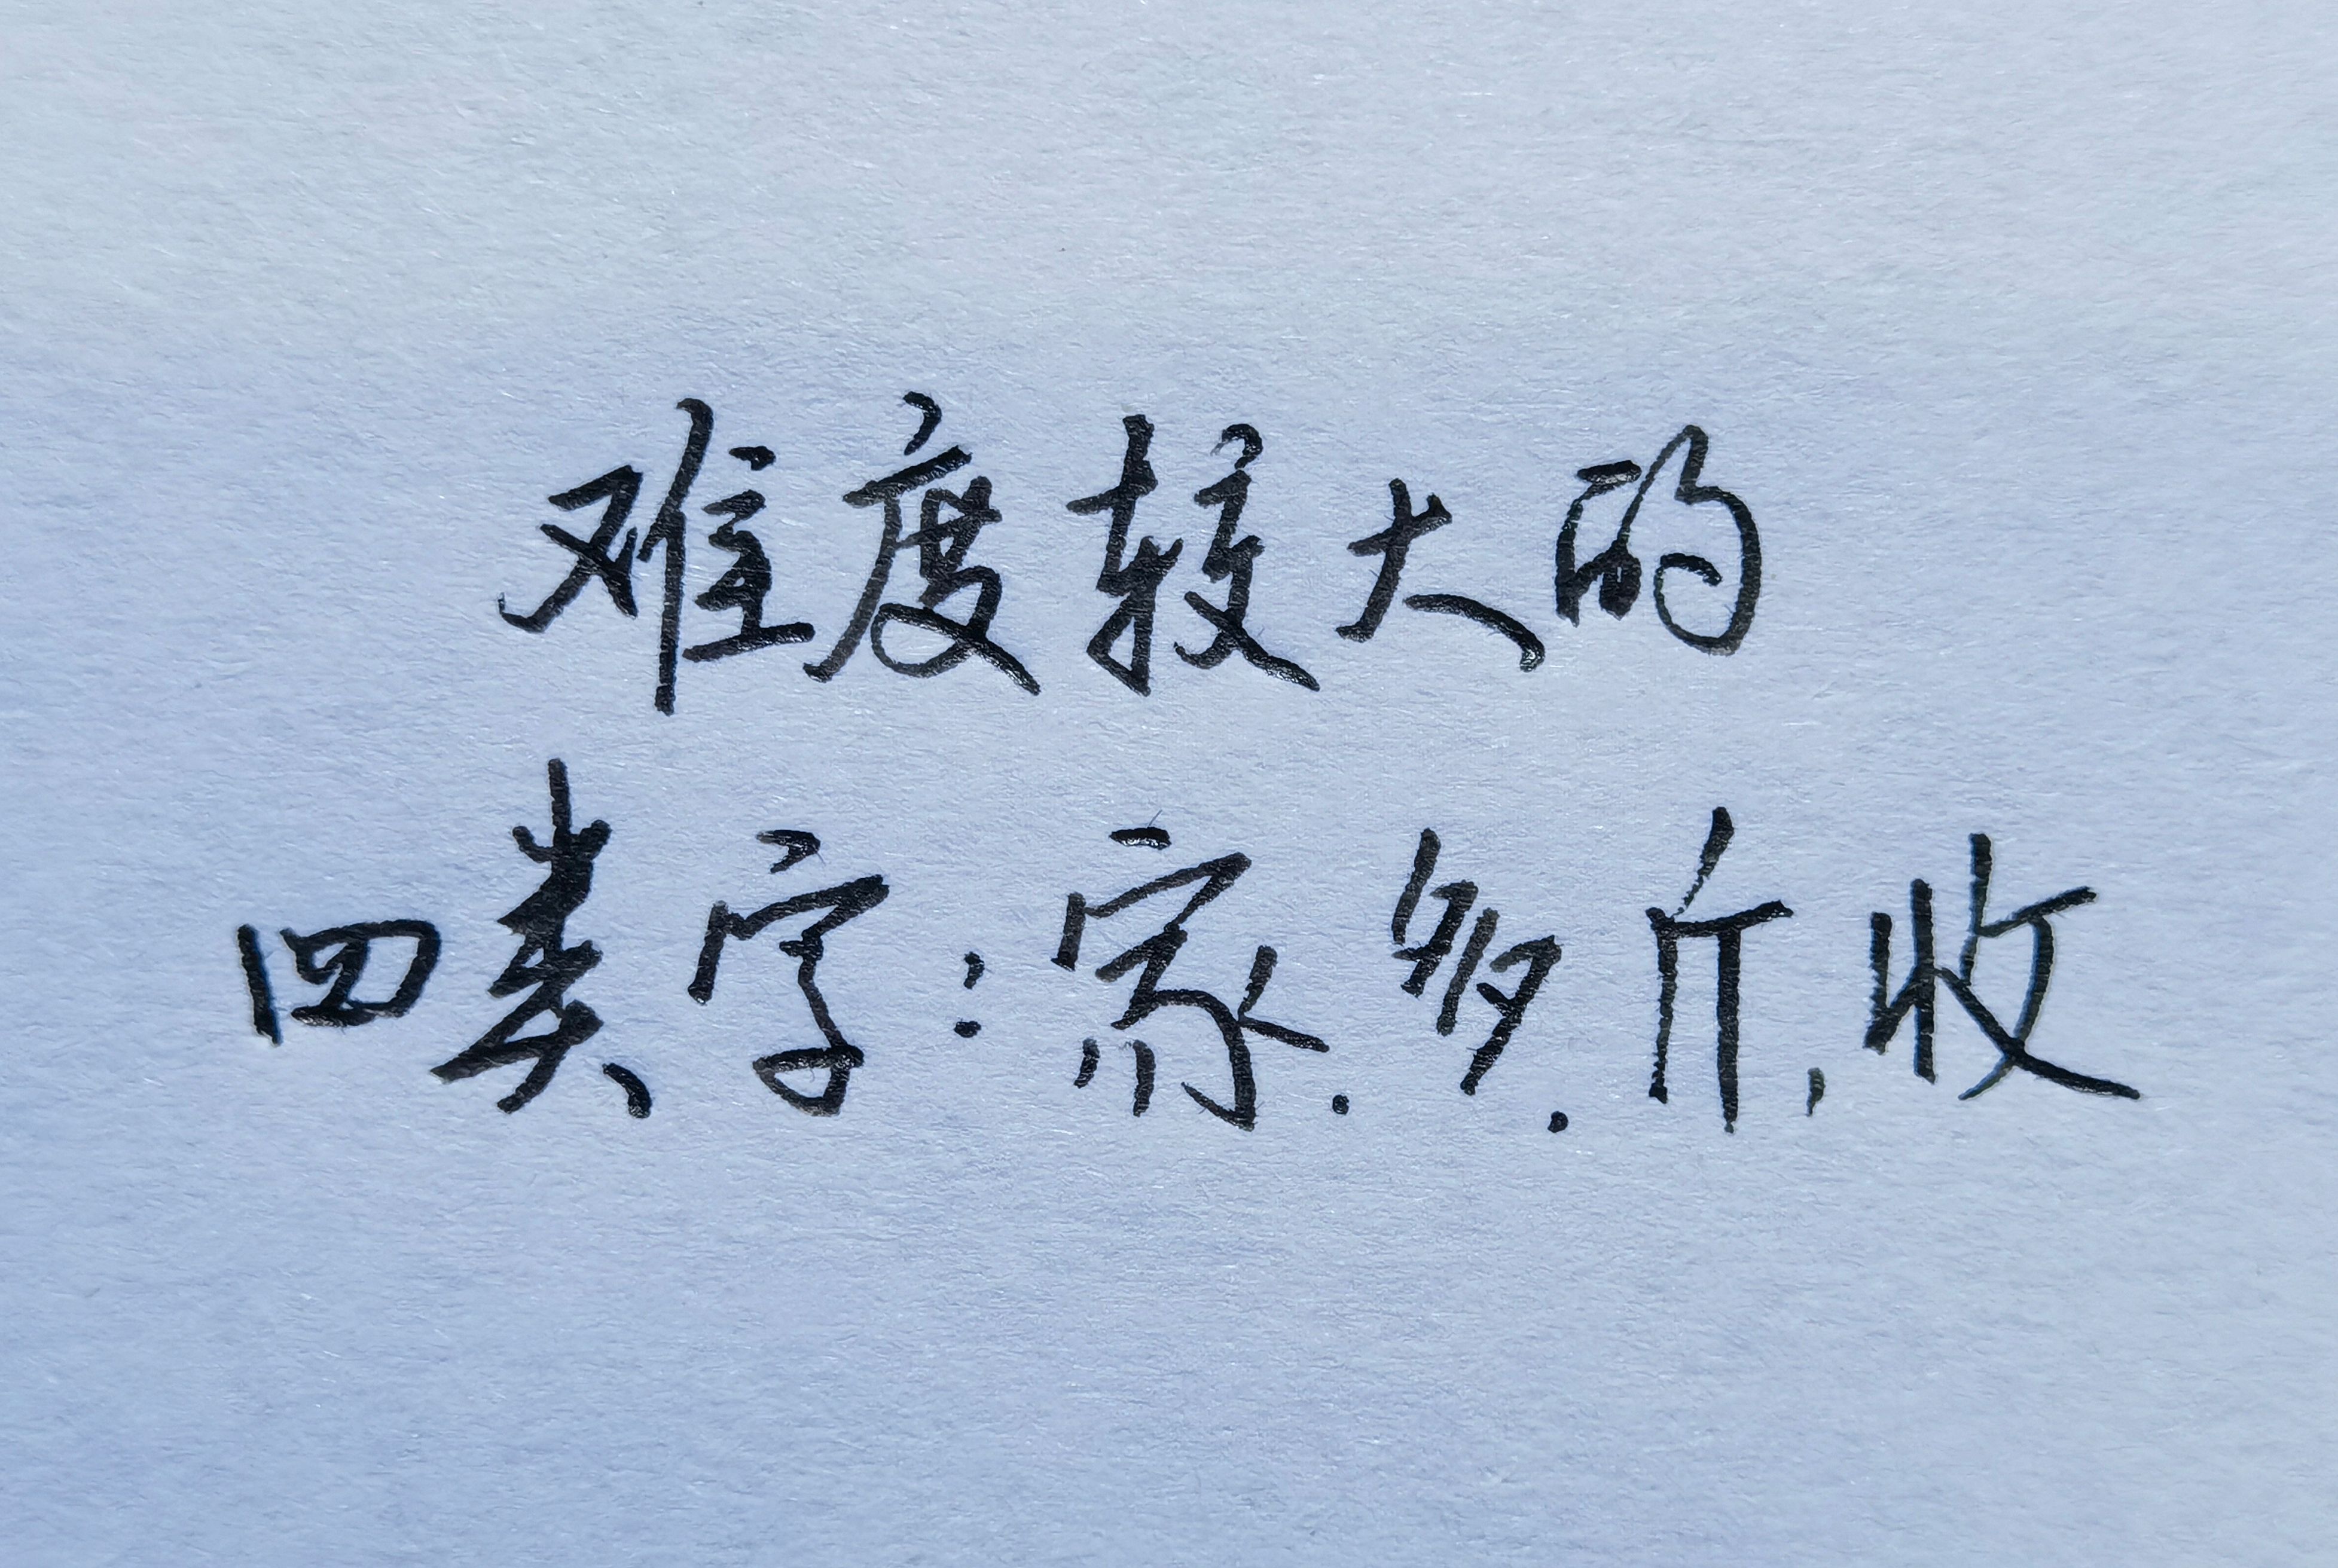 难度较大的
四类字：家.多.斤,收